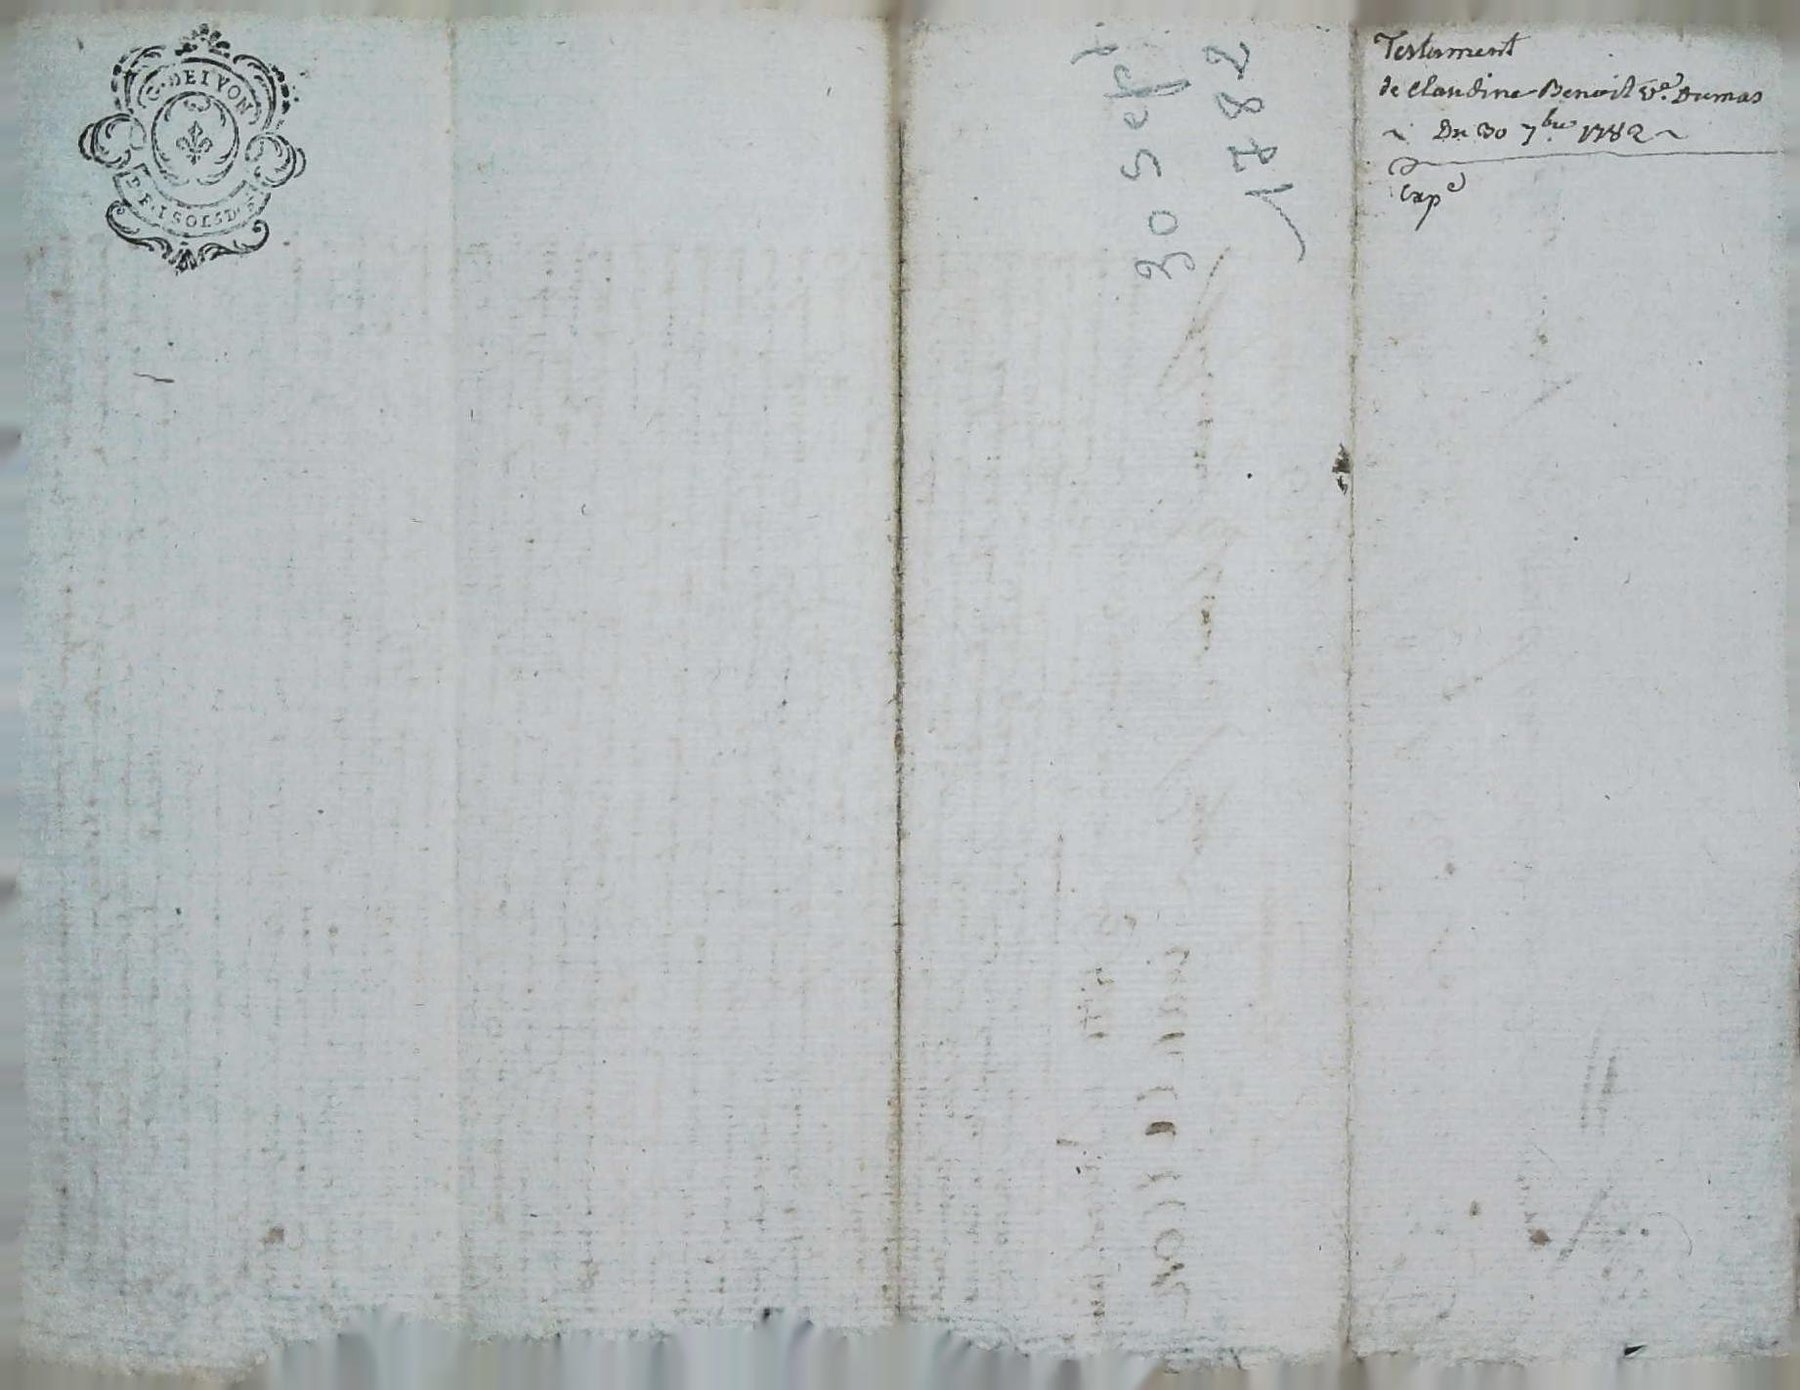 G. DE LYON
D.F. I SOL 5 D.
30 Sept
1782
Testament
de Claudine Benoit Ve. Dumas
~ Du 30 7bre 1782 ~
Expe